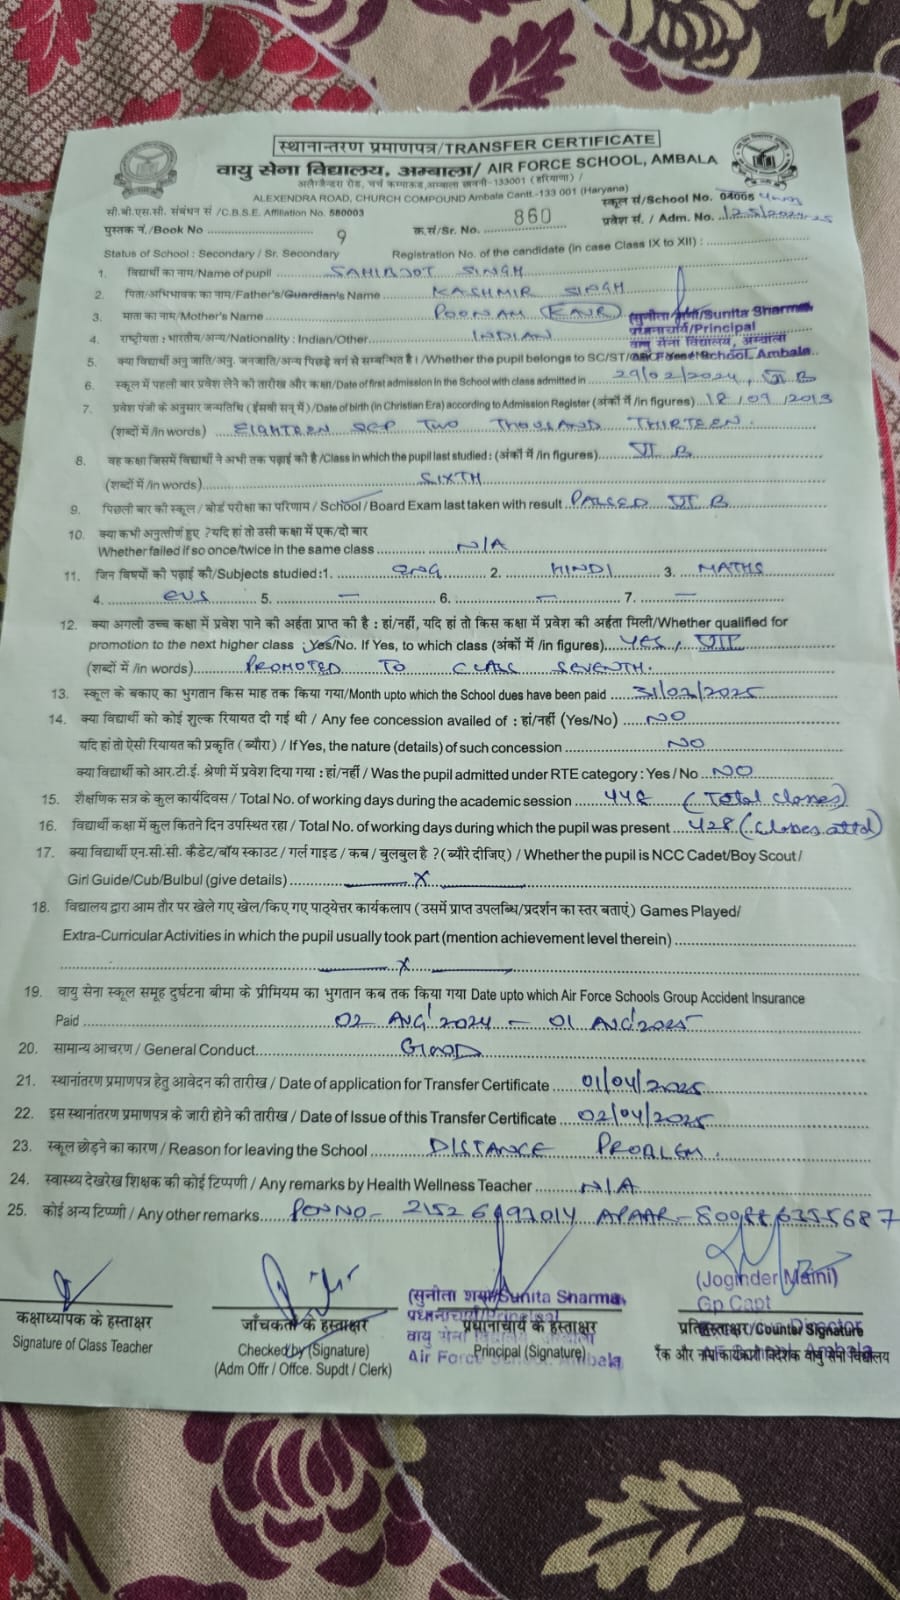 स्थानान्तरण प्रमाणपत्र/TRANSFER CERTIFICATE
वायु सेना विद्यालय, अम्बाला/ AIR FORCE SCHOOL, AMBALA
अलैग्जेन्डरा रोड, चर्च कम्पाऊड, अम्बाला छावनी-133001 (हरियाणा) /
ALEXENDRA ROAD, CHURCH COMPOUND Ambala Cantt.-133 001 (Haryana)
सी.बी.एस.सी. संबंधन सं /C.B.S.E. Affiliation No. 580003
स्कूल सं/School No. 04005
पुस्तक नं./Book No 9 क्र.सं/Sr. No. 860 प्रवेश सं. / Adm. No. 125/2024-25
Status of School : Secondary / Sr. Secondary Registration No. of the candidate (in case Class IX to XII) :
1. विद्यार्थी का नाम/Name of pupil SAHIBJOT SINGH
2. पिता/अभिभावक का नाम/Father's/Guardian's Name KASHMIR SINGH
3. माता का नाम/Mother's Name POONAM (KAUR)
(सुनीता शर्मा/Sunita Sharma
प्रधानाचार्य/Principal
वायु सेना विद्यालय, अम्बाला
School, Ambala
4. राष्ट्रीयता : भारतीय/अन्य/Nationality : Indian/Other INDIAN
5. क्या विद्यार्थी अनु जाति/अनु. जनजाति/अन्य पिछड़े वर्ग से सम्बन्धित है। / Whether the pupil belongs to SC/ST/
6. स्कूल में पहली बार प्रवेश लेने की तारीख और कक्षा/Date of first admission in the School with class admitted in 29/02/2024, VI B
7. प्रवेश पंजी के अनुसार जन्मतिथि (ईसवी सन् में)/Date of birth (in Christian Era) according to Admission Register (अंकों में /in figures) 18/09/2013
(शब्दों में /in words) EIGHTEEN SEP TWO THOUSAND THIRTEEN.
8. वह कक्षा जिसमें विद्यार्थी ने अभी तक पढ़ाई की है /Class in which the pupil last studied : (अंकों में /in figures) VI B
(शब्दों में /in words) SIXTH
9. पिछली बार की स्कूल / बोर्ड परीक्षा का परिणाम / School / Board Exam last taken with result PASSED VI B
10. क्या कभी अनुत्तीर्ण हुए ? यदि हां तो उसी कक्षा में एक/दो बार
Whether failed if so once/twice in the same class N/A
11. जिन विषयों की पढ़ाई की/Subjects studied :1. ENG 2. HINDI 3. MATHS
4. EVS 5. – 6. – 7. –
12. क्या अगली उच्च कक्षा में प्रवेश पाने की अर्हता प्राप्त की है : हां/नहीं, यदि हां तो किस कक्षा में प्रवेश की अर्हता मिली/Whether qualified for
promotion to the next higher class : Yes/No. If Yes, to which class (अंकों में /in figures) YES, VII
(शब्दों में /in words) PROMOTED TO CLASS SEVENTH.
13. स्कूल के बकाए का भुगतान किस माह तक किया गया/Month upto which the School dues have been paid
14. क्या विद्यार्थी को कोई शुल्क रियायत दी गई थी / Any fee concession availed of : हां/नहीं (Yes/No) NO
यदि हां तो ऐसी रियायत की प्रकृति ( ब्यौरा ) / If Yes, the nature (details) of such concession NO
क्या विद्यार्थी को आर.टी.ई. श्रेणी में प्रवेश दिया गया : हां/नहीं / Was the pupil admitted under RTE category : Yes / No NO
15. शैक्षणिक सत्र के कुल कार्यदिवस / Total No. of working days during the academic session (Total classes)
16. विद्यार्थी कक्षा में कुल कितने दिन उपस्थित रहा / Total No. of working days during which the pupil was present 428 (Classes attd)
17. क्या विद्यार्थी एन.सी.सी. कैडेट/बॉय स्काउट / गर्ल गाइड / कब / बुलबुल है ? ( ब्यौरे दीजिए ) / Whether the pupil is NCC Cadet/Boy Scout /
Girl Guide/Cub/Bulbul (give details) x
18. विद्यालय द्वारा आम तौर पर खेले गए खेल/किए गए पाठ्येत्तर कार्यकलाप ( उसमें प्राप्त उपलब्धि/प्रदर्शन का स्तर बताएं ) Games Played/
Extra-Curricular Activities in which the pupil usually took part (mention achievement level therein)
x
19. वायु सेना स्कूल समूह दुर्घटना बीमा के प्रीमियम का भुगतान कब तक किया गया Date upto which Air Force Schools Group Accident Insurance
Paid 02 AUG'2024 – 01 AUG'2025
20. सामान्य आचरण / General Conduct GOOD
21. स्थानांतरण प्रमाणपत्र हेतु आवेदन की तारीख / Date of application for Transfer Certificate 01/04/2025
22. इस स्थानांतरण प्रमाणपत्र के जारी होने की तारीख / Date of Issue of this Transfer Certificate 02/04/2025
23. स्कूल छोड़ने का कारण / Reason for leaving the School DISTANCE PROBLEM.
24. स्वास्थ्य देखरेख शिक्षक की कोई टिप्पणी / Any remarks by Health Wellness Teacher N/A
25. कोई अन्य टिप्पणी / Any other remarks PEN NO- APAAR-
(सुनीता शर्मा/Sunita Sharma
प्रधानाचार्य/Principal
वायु सेना
Air Force Ambala
(Joginder Maini)
Gp Capt
कक्षाध्यापक के हस्ताक्षर
Signature of Class Teacher
जाँचकर्ता के हस्ताक्षर
Checked by (Signature)
(Adm Offr / Offce. Supdt / Clerk)
प्रधानाचार्य के हस्ताक्षर
Principal (Signature)
प्रतिहस्ताक्षर/Counter Signature